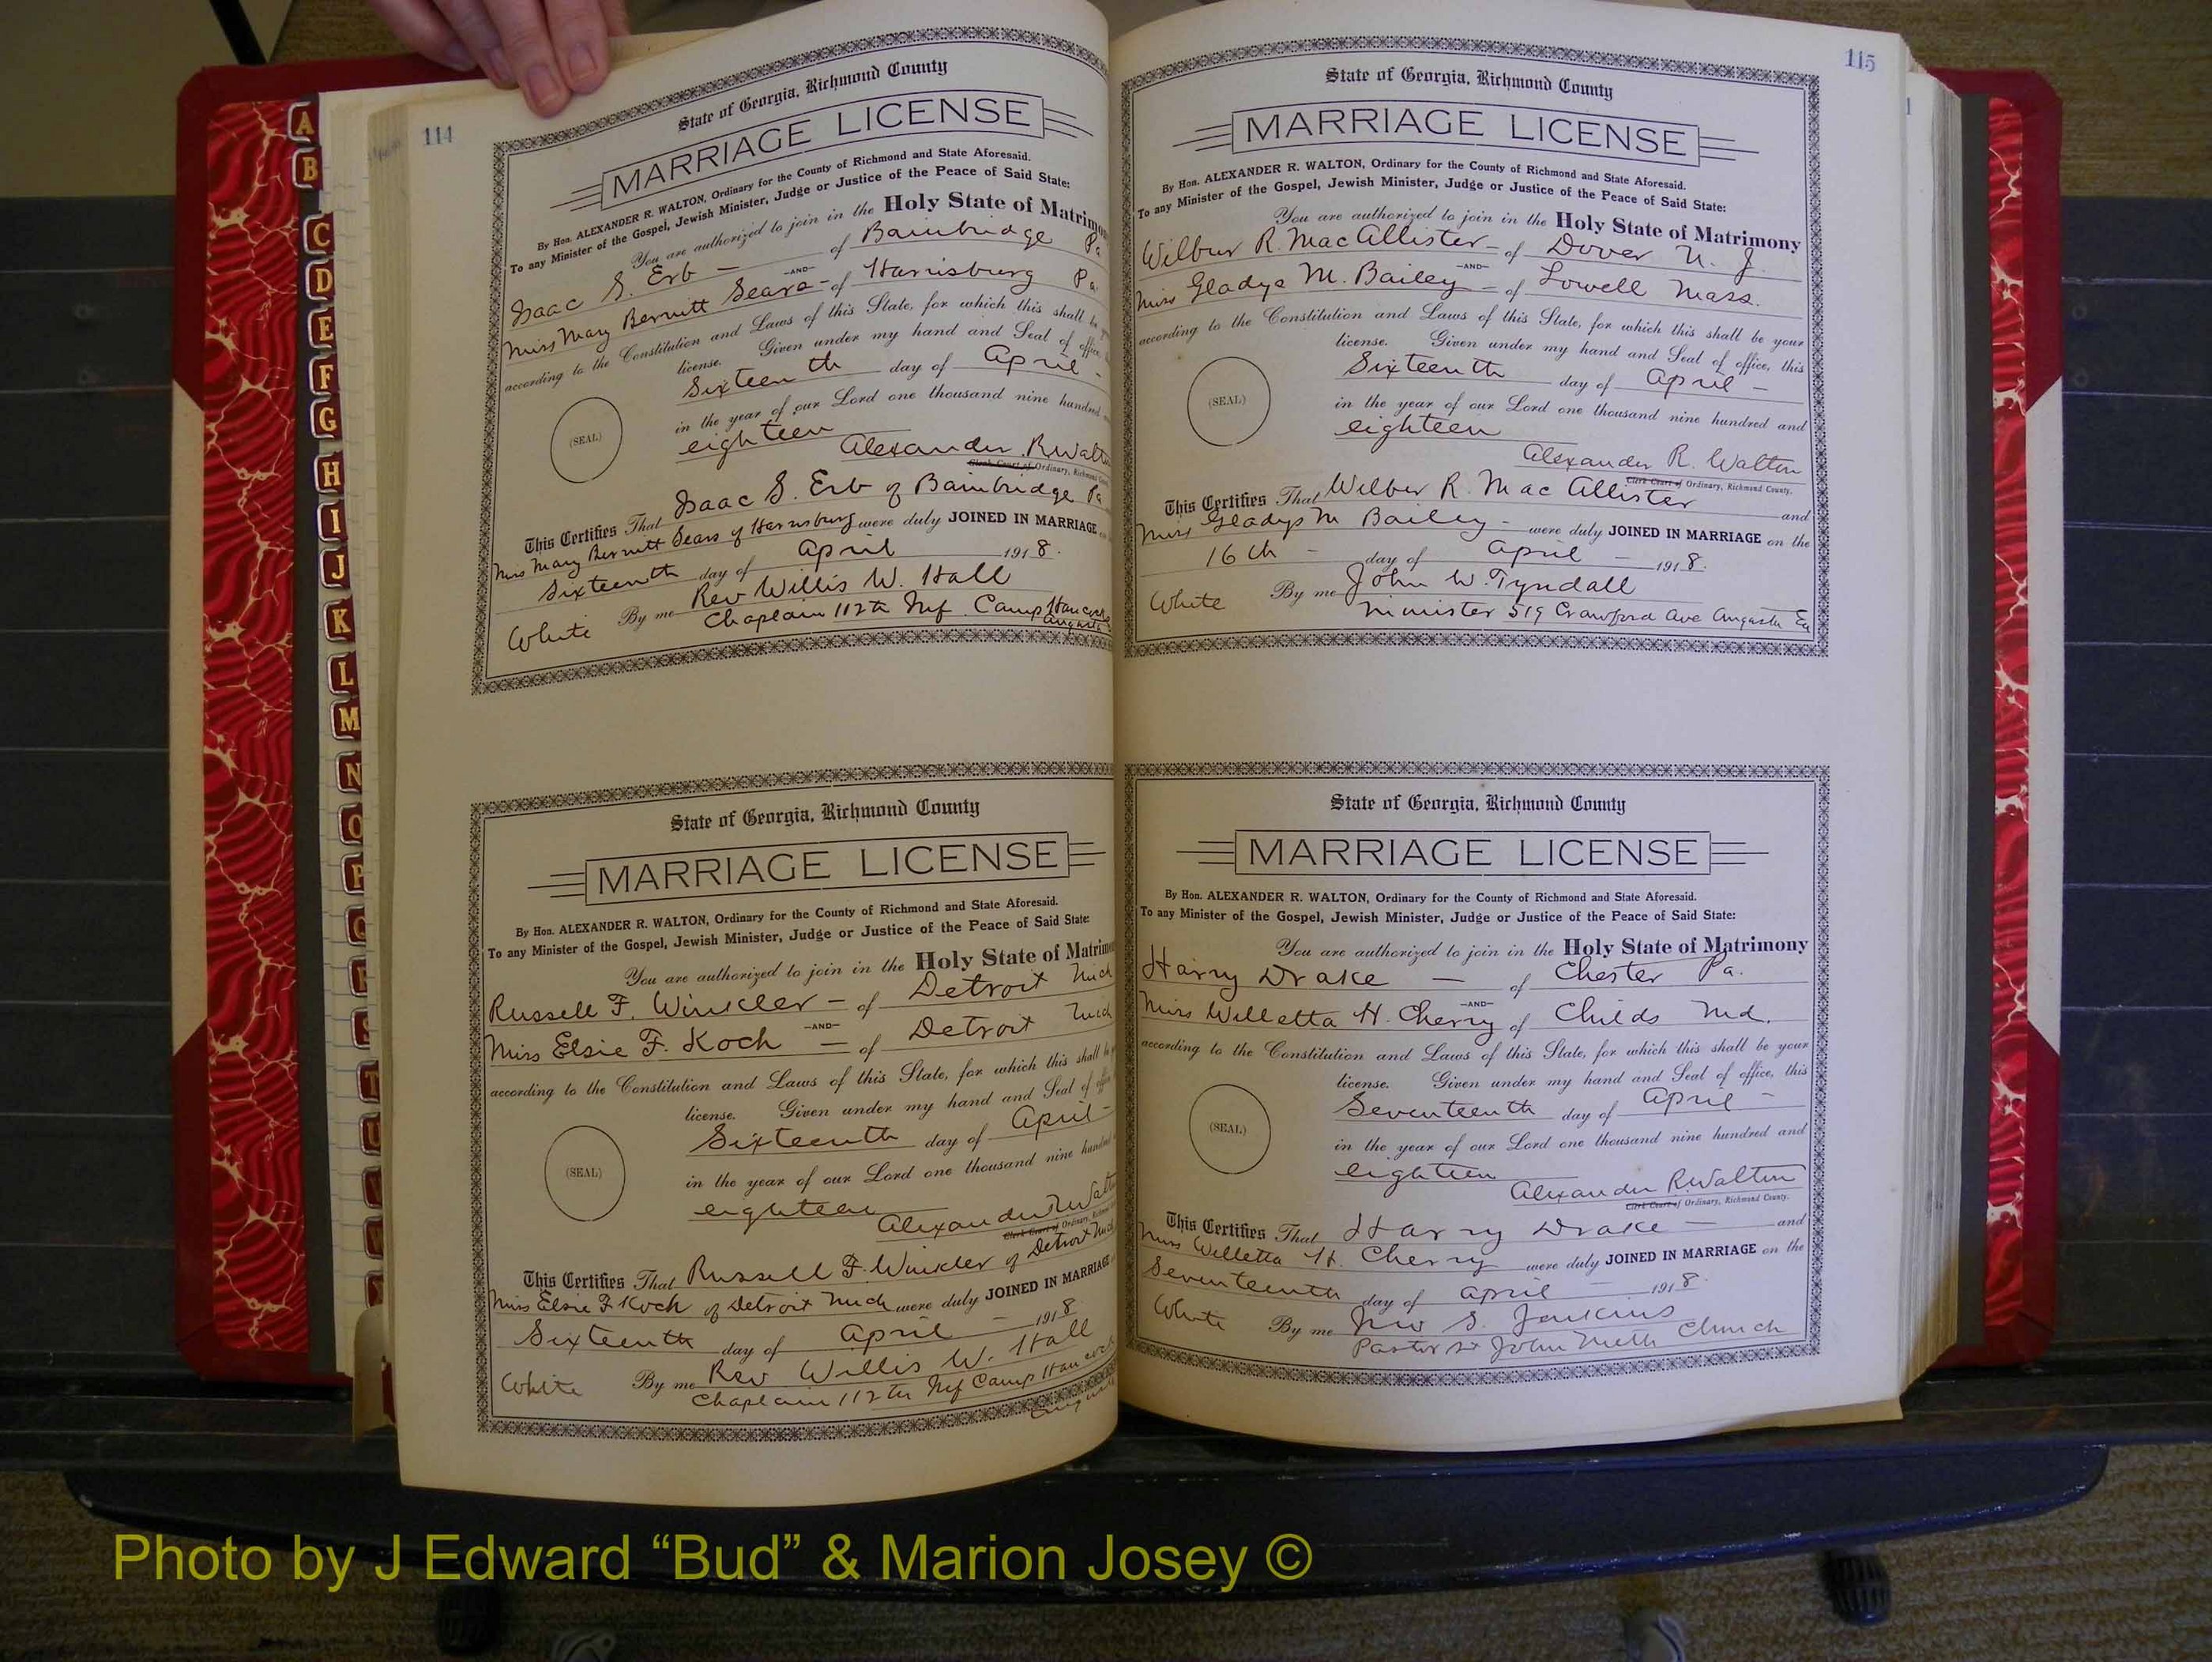 A
B
C
D
E
F
G
H
I
J
K
L
M
N
O
P
Q
R
S
T
U
114
State of Georgia, Richmond County
MARRIAGE LICENSE
By Hon. ALEXANDER R. WALTON, Ordinary for the County of Richmond and State Aforesaid.
To any Minister of the Gospel, Jewish Minister, Judge or Justice of the Peace of Said State:
You are authorized to join in the Holy State of Matrimo
Isaac S. Erb — of Bainbridge Pa
—AND—
Miss Mary Bernitt Sears — of Harrisburg Pa.
according to the Constitution and Laws of this State, for which this shall be
license. Given under my hand and Seal of office,
Sixteenth day of April -
(SEAL)
in the year of our Lord one thousand nine hundred
eighteen
Alexander R Walto
Clerk Court of Ordinary, Richmond
This Certifies That Isaac S. Erb of Bainbridge Pa
Miss Mary Bernitt Sears of Harrisburg were duly JOINED IN MARRIAGE
Sixteenth day of April 1918.
By me Rev Willis W. Hall
White Chaplain 112th Inf. Camp Hancock
Augusta
State of Georgia, Richmond County
MARRIAGE LICENSE
By Hon. ALEXANDER R. WALTON, Ordinary for the County of Richmond and State Aforesaid.
To any Minister of the Gospel, Jewish Minister, Judge or Justice of the Peace of Said State:
You are authorized to join in the Holy State of Matrimo
Russell F. Winkler — of Detroit Mich
—AND—
Miss Elsie F. Koch — of Detroit Mich
according to the Constitution and Laws of this State, for which this shall be
license. Given under my hand and Seal of offic
Sixteenth day of April -
(SEAL)
in the year of our Lord one thousand nine hundre
eighteen
Alexander R Walton
Clerk Court of Ordinary, Richmo
This Certifies That Russell F. Winkler of Detroit Mich
Miss Elsie F Koch of Detroit Mich were duly JOINED IN MARRIAGE
Sixteenth day of April — 1918
White By me Rev Willis W. Hall
Chaplain 112th Inf Camp Hancock
115
State of Georgia, Richmond County
MARRIAGE LICENSE
By Hon. ALEXANDER R. WALTON, Ordinary for the County of Richmond and State Aforesaid.
To any Minister of the Gospel, Jewish Minister, Judge or Justice of the Peace of Said State:
You are authorized to join in the Holy State of Matrimony
Wilbur R. Mac Allister — of Dover N. J.
—AND—
Miss Gladys M. Bailey — of Lowell Mass.
according to the Constitution and Laws of this State, for which this shall be your
license. Given under my hand and Seal of office, this
Sixteenth day of April —
(SEAL)
in the year of our Lord one thousand nine hundred and
eighteen
Alexander R. Walton
Clerk Court of Ordinary, Richmond County.
This Certifies That Wilbur R. Mac Allister and
Miss Gladys M Bailey - were duly JOINED IN MARRIAGE on the
16th - day of April — 1918.
White By me John W. Tyndall
Minister 519 Crawford Ave Augusta Ga
State of Georgia, Richmond County
MARRIAGE LICENSE
By Hon. ALEXANDER R. WALTON, Ordinary for the County of Richmond and State Aforesaid.
To any Minister of the Gospel, Jewish Minister, Judge or Justice of the Peace of Said State:
You are authorized to join in the Holy State of Matrimony
Harry Drake — of Chester Pa.
—AND—
Miss Willetta H. Cherry of Childs Md.
according to the Constitution and Laws of this State, for which this shall be your
license. Given under my hand and Seal of office, this
Seventeenth day of April -
(SEAL)
in the year of our Lord one thousand nine hundred and
eighteen
Alexander R. Walton
Clerk Court of Ordinary, Richmond County.
This Certifies That Harry Drake — and
Miss Willetta H. Cherry were duly JOINED IN MARRIAGE on the
Seventeenth day of April — 1918.
White By me Jno S. Jenkins
Pastor St John Meth Church
Photo by J Edward “Bud” & Marion Josey ©